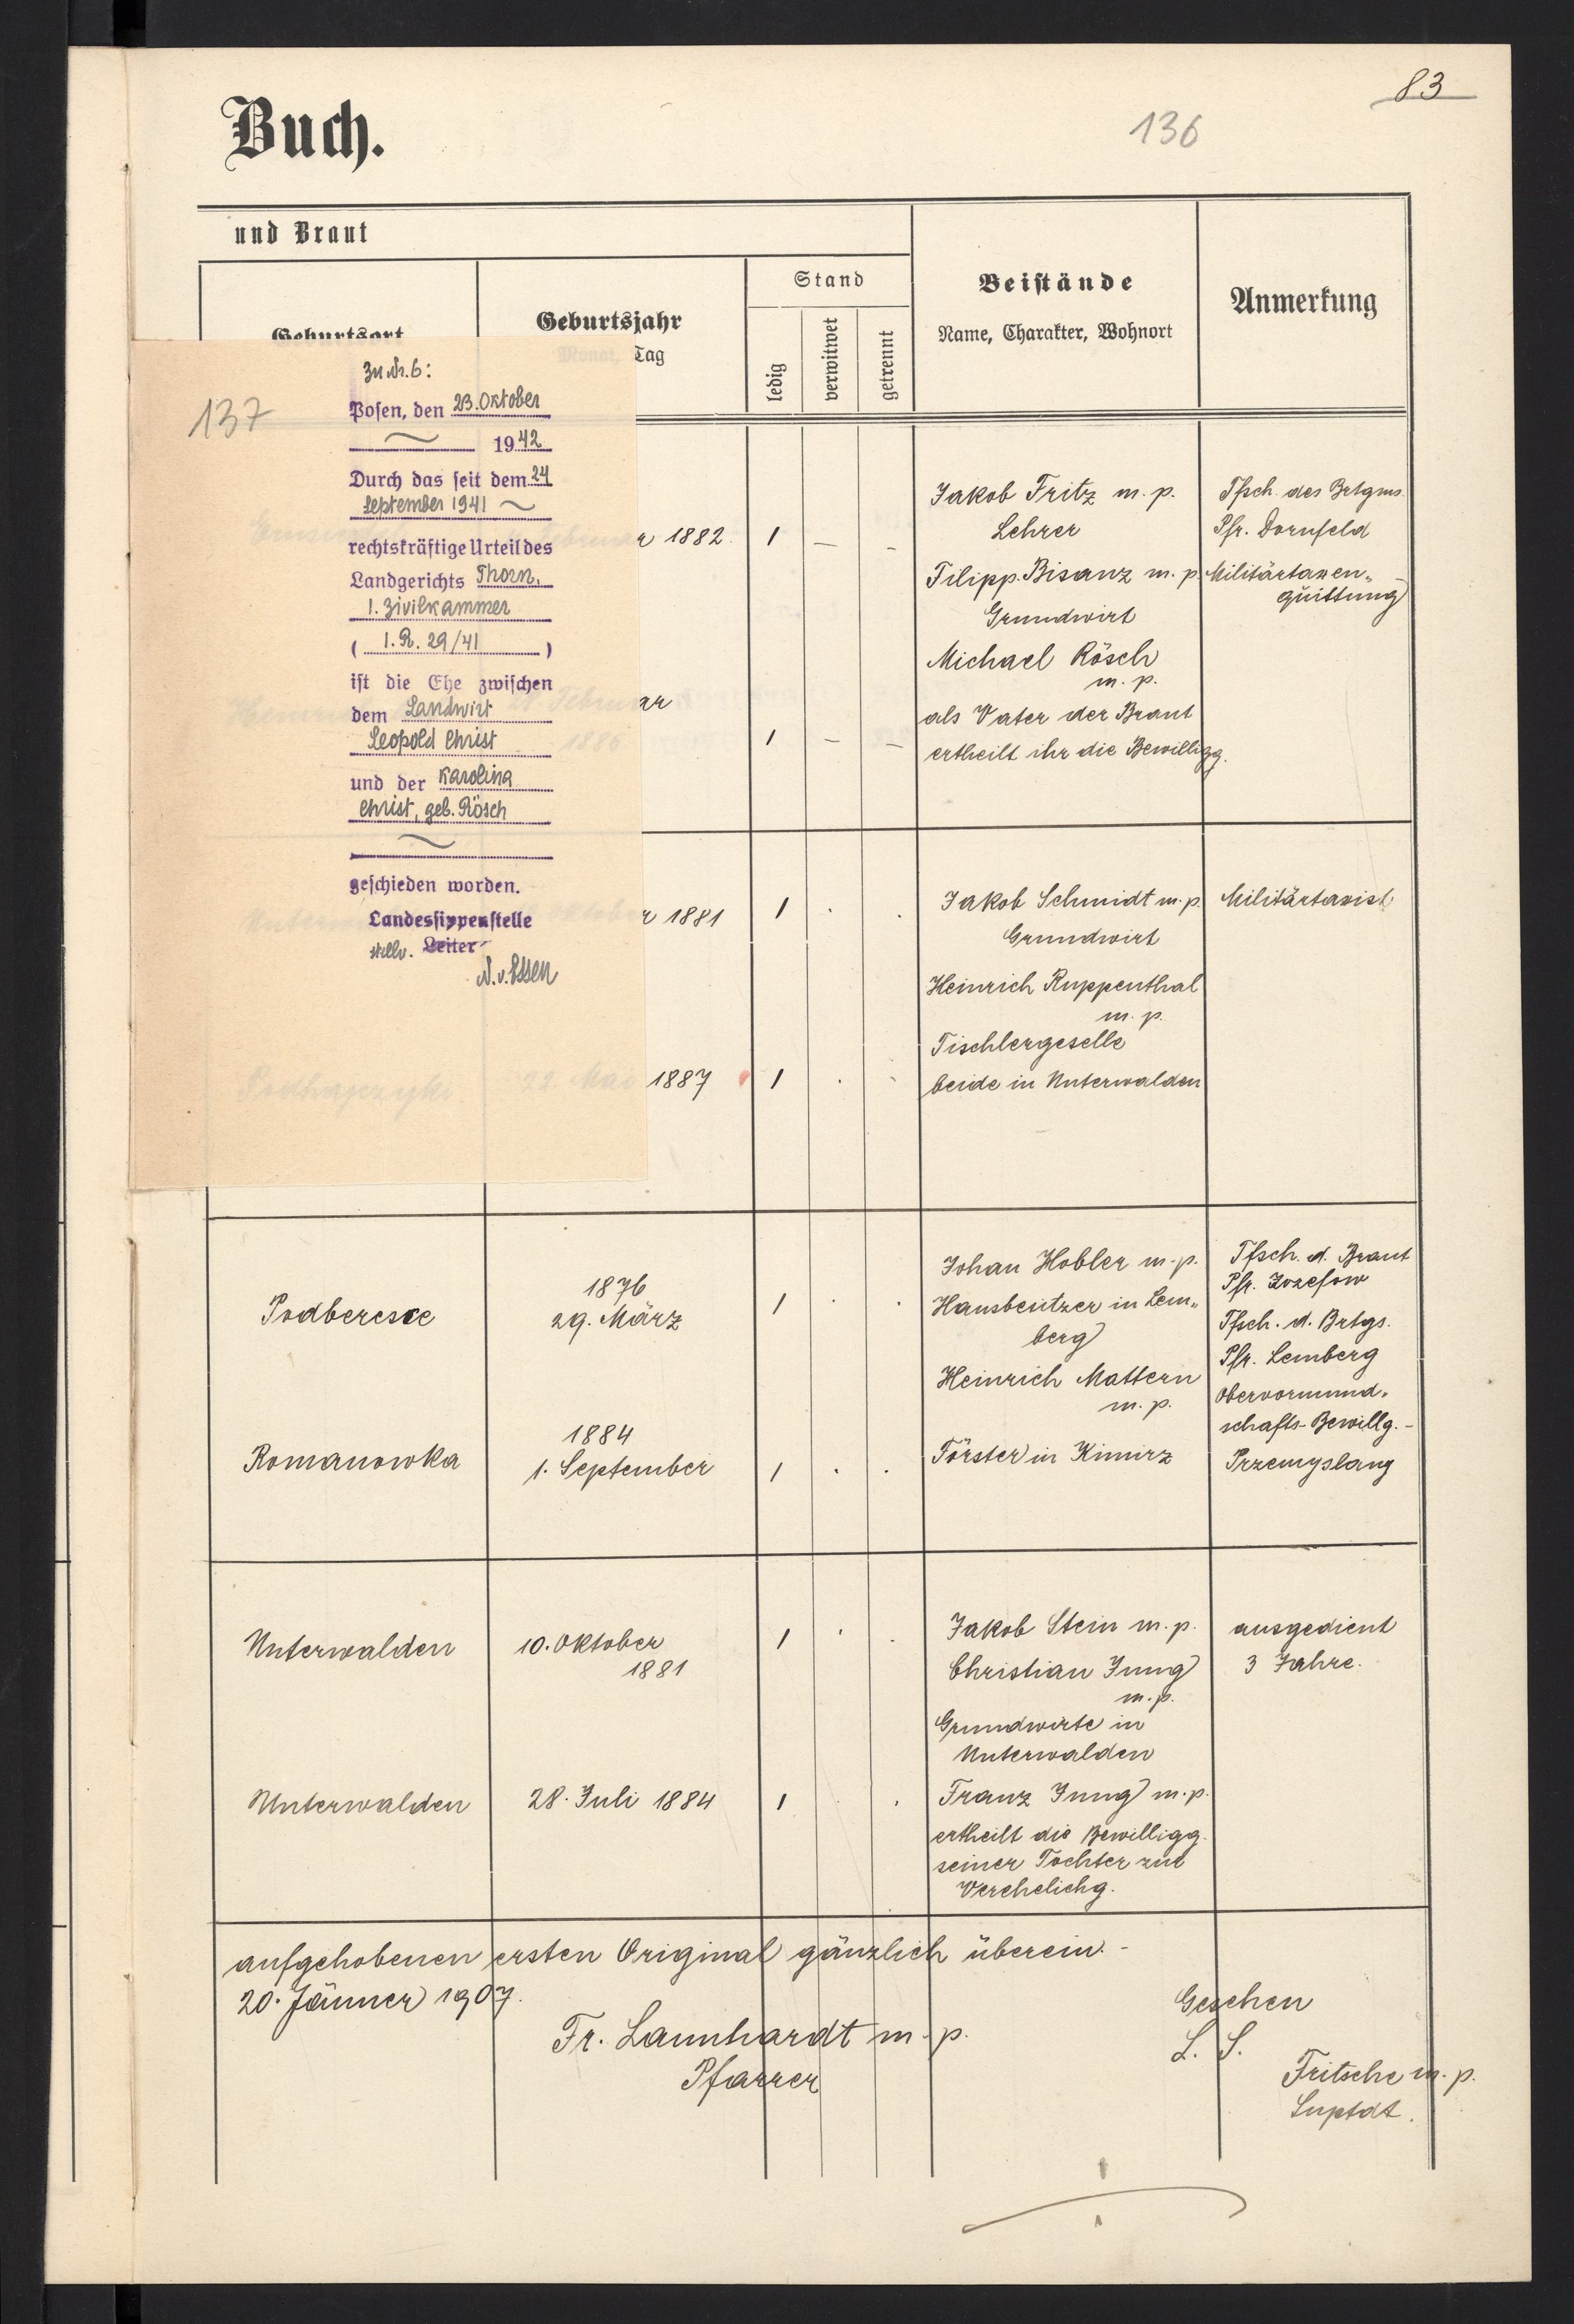 83
136
Buch.
und Braut
Geburtsort
Geburtsjahr
Monat, Tag
Stand
ledig
verwitwet
getrennt
Beistände
Name, Charakter, Wohnort
Anmerkung
137
Zu Nr. 6:
Posen, den 23. Oktober
1942
Durch das seit dem 24
September 1941
rechtskräftige Urteil des
Landgerichts Thorn,
1. Zivilkammer
( 1. R. 29/41 )
ist die Ehe zwischen
dem Landwirt
Leopold Christ
und der Karolina
Christ, geb. Rösch
geschieden worden.
Landessippenstelle
stellv. Leiter
N. v. Essen
r 1882. 1 – –
Jakob Fritz m. p.
Lehrer
Filipp Bisanz m. p.
Grundwirt
Michael Rösch
m. p.
als Vater der Braut
ertheilt ihr die Bewilligg.
Tfsch. des Brtgms.
Pfr. Dornfeld
Militärtaxen„
quittung
28 Februar
1886 1 – –
Oktober 1881 1 . .
Jakob Schmidt m. p.
Grundwirt
Heinrich Ruppenthal
m. p.
Tischlergeselle
beide in Unterwalden
Militärtaxist
Podhajczyki 22. Mai 1887 1 . .
Podberesce
1876
29. März
1 . .
Johan Hobler m. p.
Hausbesitzer in Lem„
berg
Heinrich Mattern
m. p.
Förster in Kimirz
Tfsch. d. Braut
Pfr. Jozefow
Tfsch. d. Brtgs.
Pfr. Lemberg
Obervormund„
schafts-Bewillg. -
Przemyslany
Romanowka
1884
1. September
1 . .
Unterwalden
10. Oktober
1881
1 . .
Jakob Stein m. p.
Christian Jung
m. p.
Grundwirte in
Unterwalden
Franz Jung m. p.
ertheilt die Bewilligg.
seiner Tochter zur
Verehelichg.
ausgedient
3 Jahre.
Unterwalden 28. Juli 1884 1 . .
aufgehobenen ersten Original gänzlich überein. -
20. Jänner 1907.
Fr. Launhardt m. p.
Pfarrer
Gesehen
L. S.
Fritsche m. p.
Suptdt.